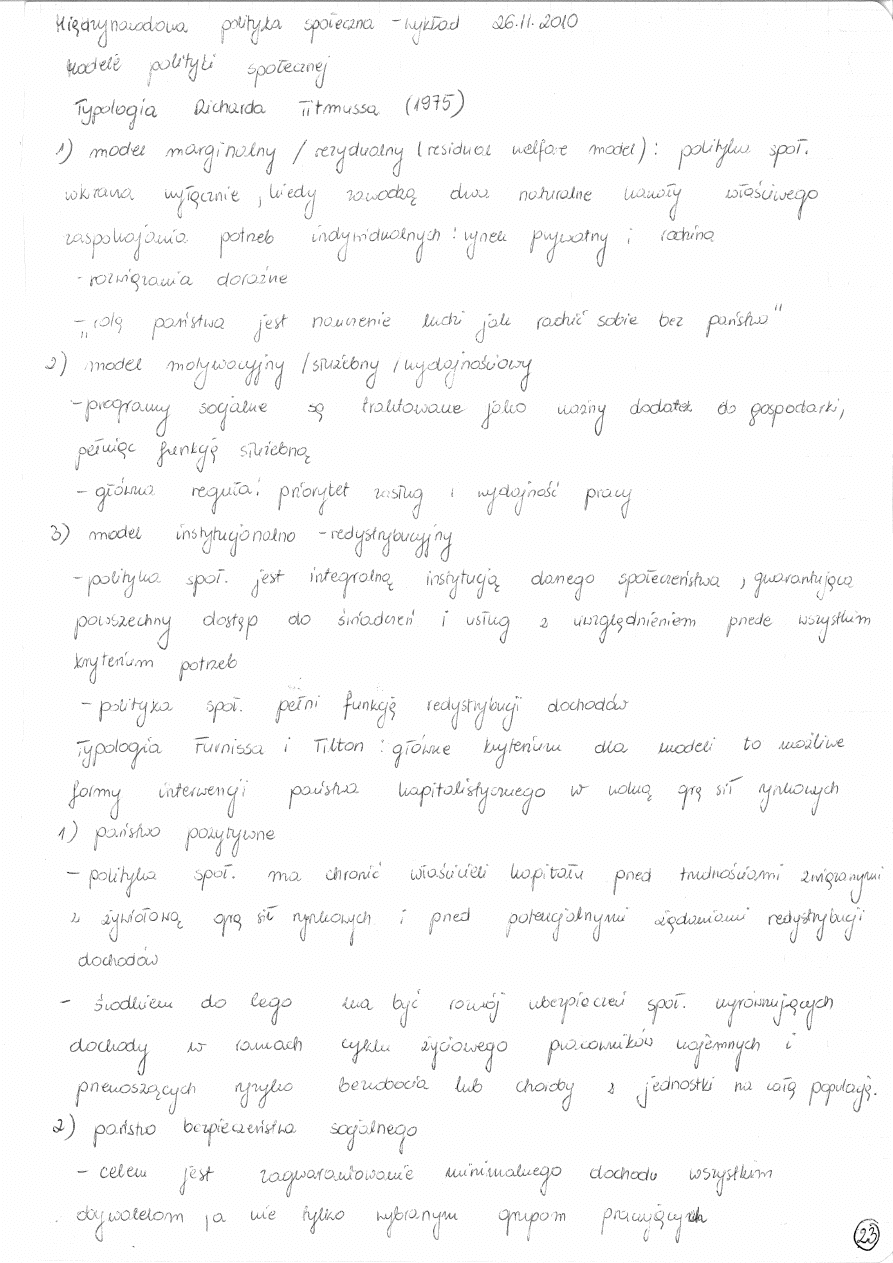 Międzynarodowa polityka społeczna - wykład 26.11.2010
Modele polityki społecznej
Typologia Richarda Titmussa (1975)
1) model marginalny / rezydualny (residual welfare model): polityka społ.
wkracza wyłącznie, kiedy zawodzą dwa naturalne kanały właściwego
zaspokajania potrzeb indywidualnych: rynek prywatny i rodzina
- rozwiązania doraźne
- „rolą państwa jest nauczenie ludzi jak radzić sobie bez państwa"
2) model motywacyjny / służebny / wydajnościowy
- programy socjalne są traktowane jako ważny dodatek do gospodarki,
pełniąc funkcję służebną
- główna reguła: priorytet zasług i wydajność pracy
3) model instytucjonalno - redystrybucyjny
- polityka społ. jest integralną instytucją danego społeczeństwa, gwarantującą
powszechny dostęp do świadczeń i usług z uwzględnieniem przede wszystkim
kryterium potrzeb
- polityka społ. pełni funkcję redystrybucji dochodów
Typologia Furnissa i Tilton: główne kryterium dla modeli to możliwe
formy interwencji państwa kapitalistycznego w wolną grę sił rynkowych
1) państwo pozytywne
- polityka społ. ma chronić właścicieli kapitału przed trudnościami związanymi
z żywiołową grą sił rynkowych i przed potencjalnymi żądaniami redystrybucji
dochodów
- środkiem do tego ma być rozwój ubezpieczeń społ. wyrównujących
dochody w ramach cyklu życiowego pracowników najemnych i
przenoszących ryzyko bezrobocia lub choroby z jednostki na całą populację.
2) państwo bezpieczeństwa socjalnego
- celem jest zagwarantowanie minimalnego dochodu wszystkim
obywatelom, a nie tylko wybranym grupom pracujących
23